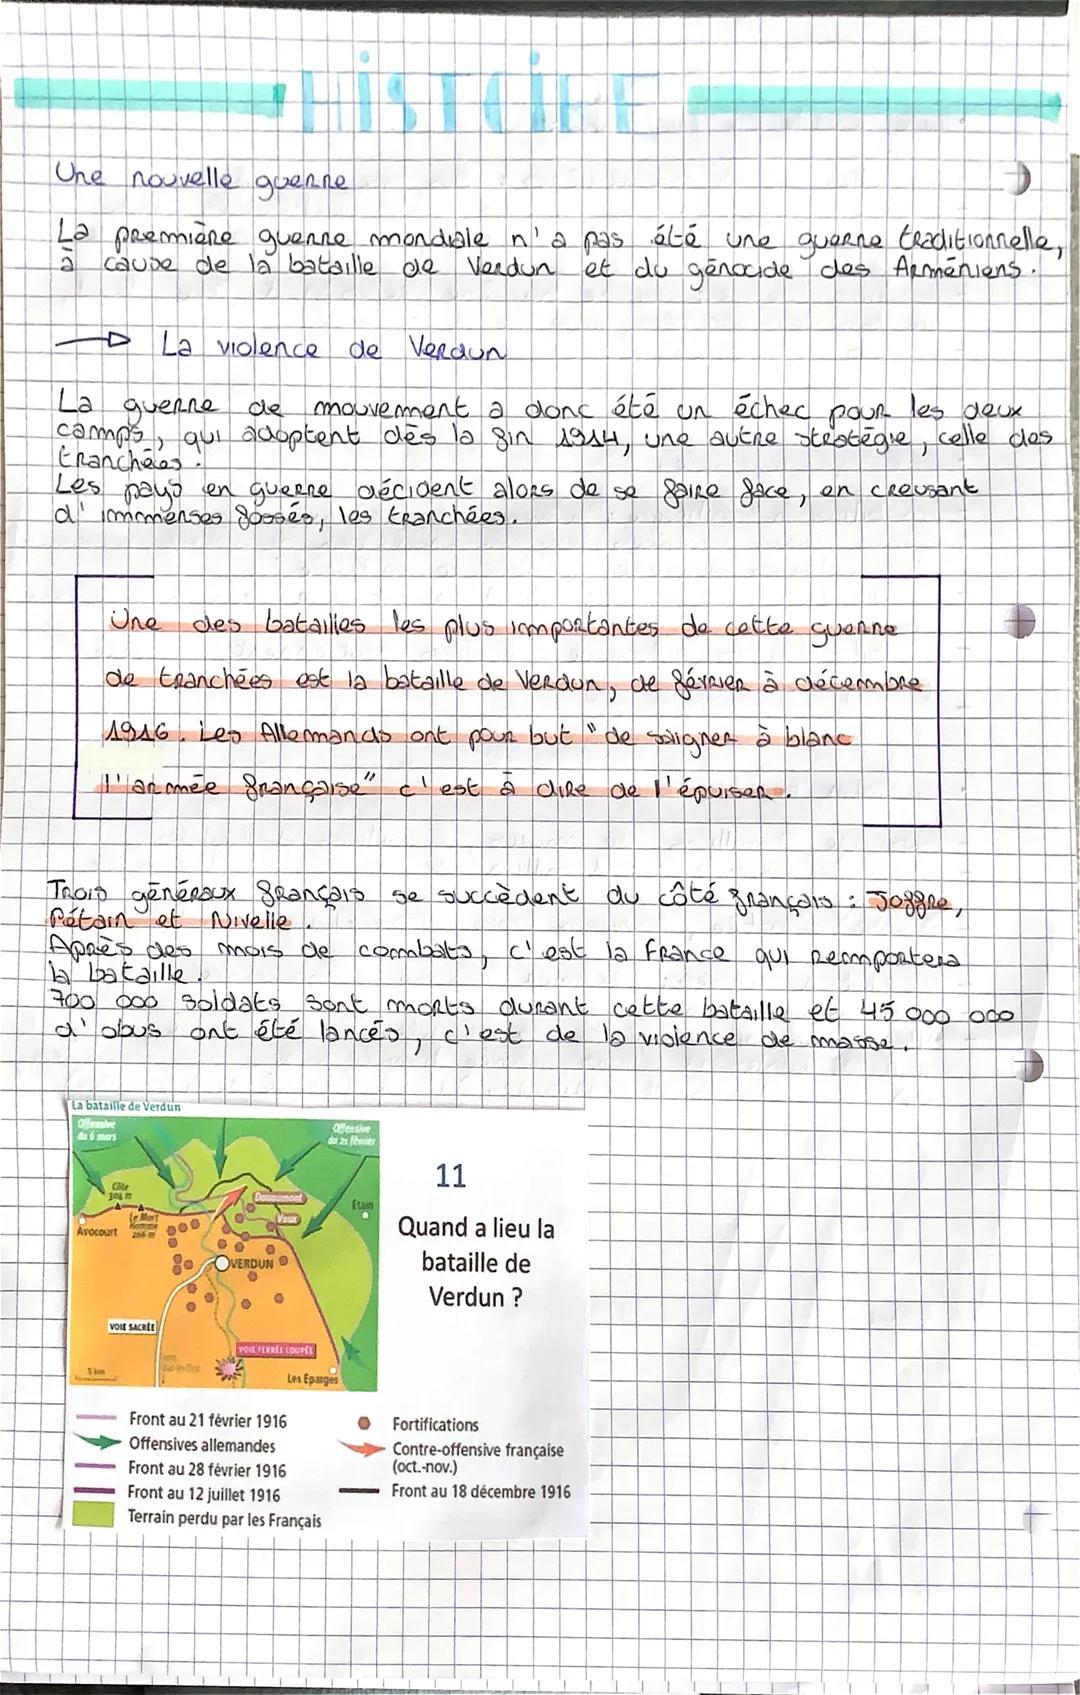 HISTOIRE
Une nouvelle guerre
La première guerre mondiale n'a pas été une guerre traditionnelle,
à cause de la bataille de Verdun et du génocide des Arméniens.
La violence de Verdun
La guerre de mouvement a donc été un échec pour les deux
camps, qui adoptent dès la fin 1914, une autre stratégie, celle des
tranchées.
Les pays en guerre décident alors de se faire face, en creusant
d'immenses fossés, les tranchées.
Une des batailles les plus importantes de cette guerre
de tranchées est la bataille de Verdun, de février à décembre
1916. Les Allemands ont pour but "de saigner à blanc
l'armée française" c'est à dire de l'épuiser.
Trois généraux français se succèdent du côté français : Joffre,
Pétain et Nivelle.
Après des mois de combats, c'est la France qui remportera
la bataille.
700 000 soldats sont morts durant cette bataille et 45 000 000
d'obus ont été lancés, c'est de la violence de masse.
La bataille de Verdun
Offensive
du 6 mars
Offensive
du 21 février
Côte
304 m
Le Mort
Homme
Avocourt
Douaumont
Vaux
Etain
VERDUN
VOIE SACRÉE
VOIE FERRÉE COUPÉE
5 km
Les Éparges
11
Quand a lieu la
bataille de
Verdun ?
Front au 21 février 1916
Offensives allemandes
Front au 28 février 1916
Front au 12 juillet 1916
Terrain perdu par les Français
Fortifications
Contre-offensive française
(oct.-nov.)
Front au 18 décembre 1916